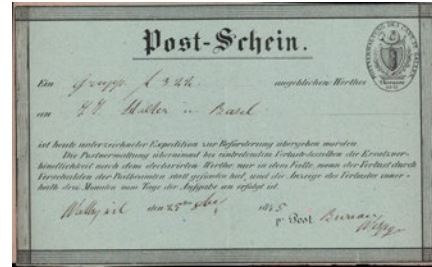 Post-Schein.
Ein Grupp. f 322 angeblichen Werthes
an
Haller in Basel
ist heute unterzeichneter Expedition zur Beförderung übergeben worden
Die Postverwaltung übernimmt bei eintretendem Verlust desselben die Ersatzver-
bindlichkeit nach dem declarirten Werthe nur in dem Falle, wenn der Verlust durch
Verschulden der Postbeamten statt gefunden hat, und die Anzeige des Verlustes inner-
halb drei Monaten vom Tage der Aufgabe an erfolgt ist.
den 25 1845
pr Post Bureau